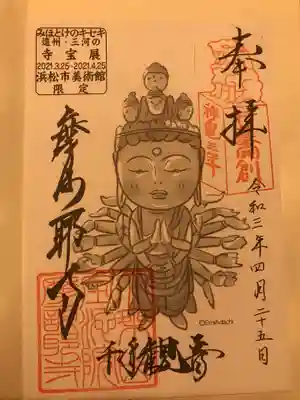 みほとけのキセキ
遠州・三河の
寺宝展
2021.3.25~2021.4.25
浜松市美術館
限定
奉拝
令和三年四月二十五日
神亀三年
千手観音
摩訶耶寺
©EmiAdachi